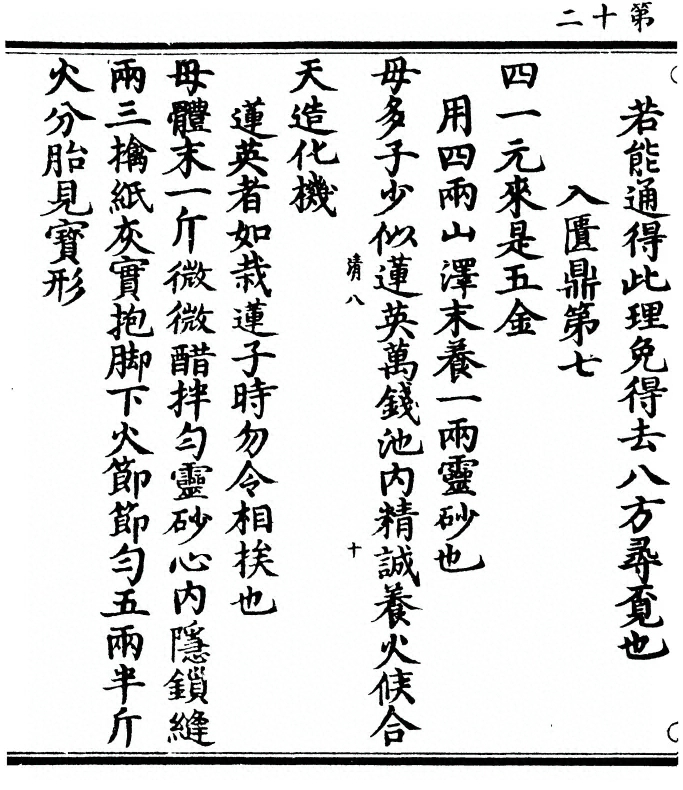 第十二
若能通得此理免得去八方尋覔也
入匱鼎第七
四一元來是五金
用四兩山澤末養一兩靈砂也
母多子少似蓮英萬錢池内精誠養火候合
清八 十
天造化機
蓮英者如栽蓮子時勿令相挨也
母體末一斤微微醋拌勻靈砂心内隱鎖縫
兩三擒紙灰實抱脚下火節節勻五兩半斤
火分胎見寶形